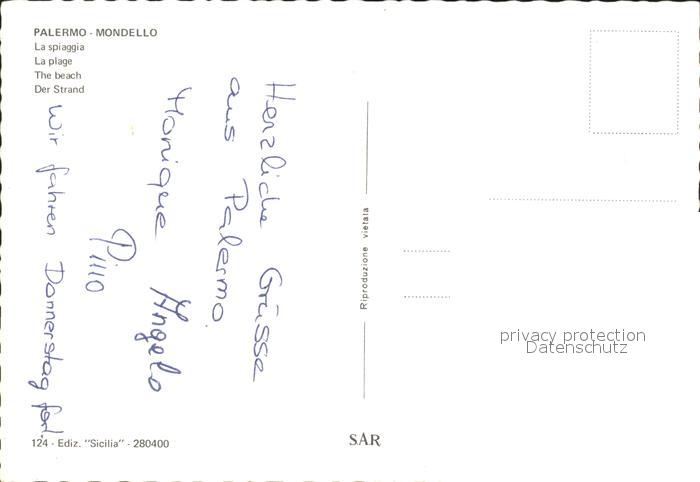 PALERMO - MONDELLO
La spiaggia
La plage
The beach
Der Strand
Herzliche Grüsse
aus Palermo.
Monique Angelo
Pino
Wir fahren Donnerstag fort.
Riproduzione vietata
privacy protection
Datenschutz
124 - Ediz. "Sicilia" - 280400
SAR